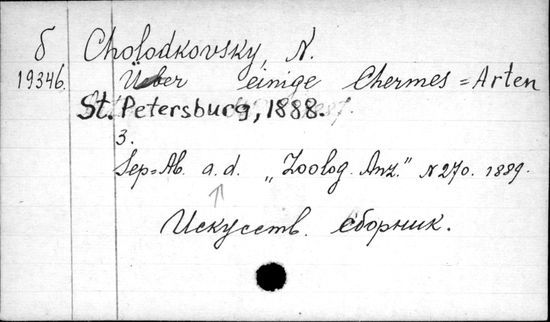 б Cholodkovsky, N.
19346. Über einige Chermes=Arten
St. Petersburg, 1888.
3.
Sep=Ab. a. d. „Zoolog. Anz." N 270. 1889.
Искусств. сборник.